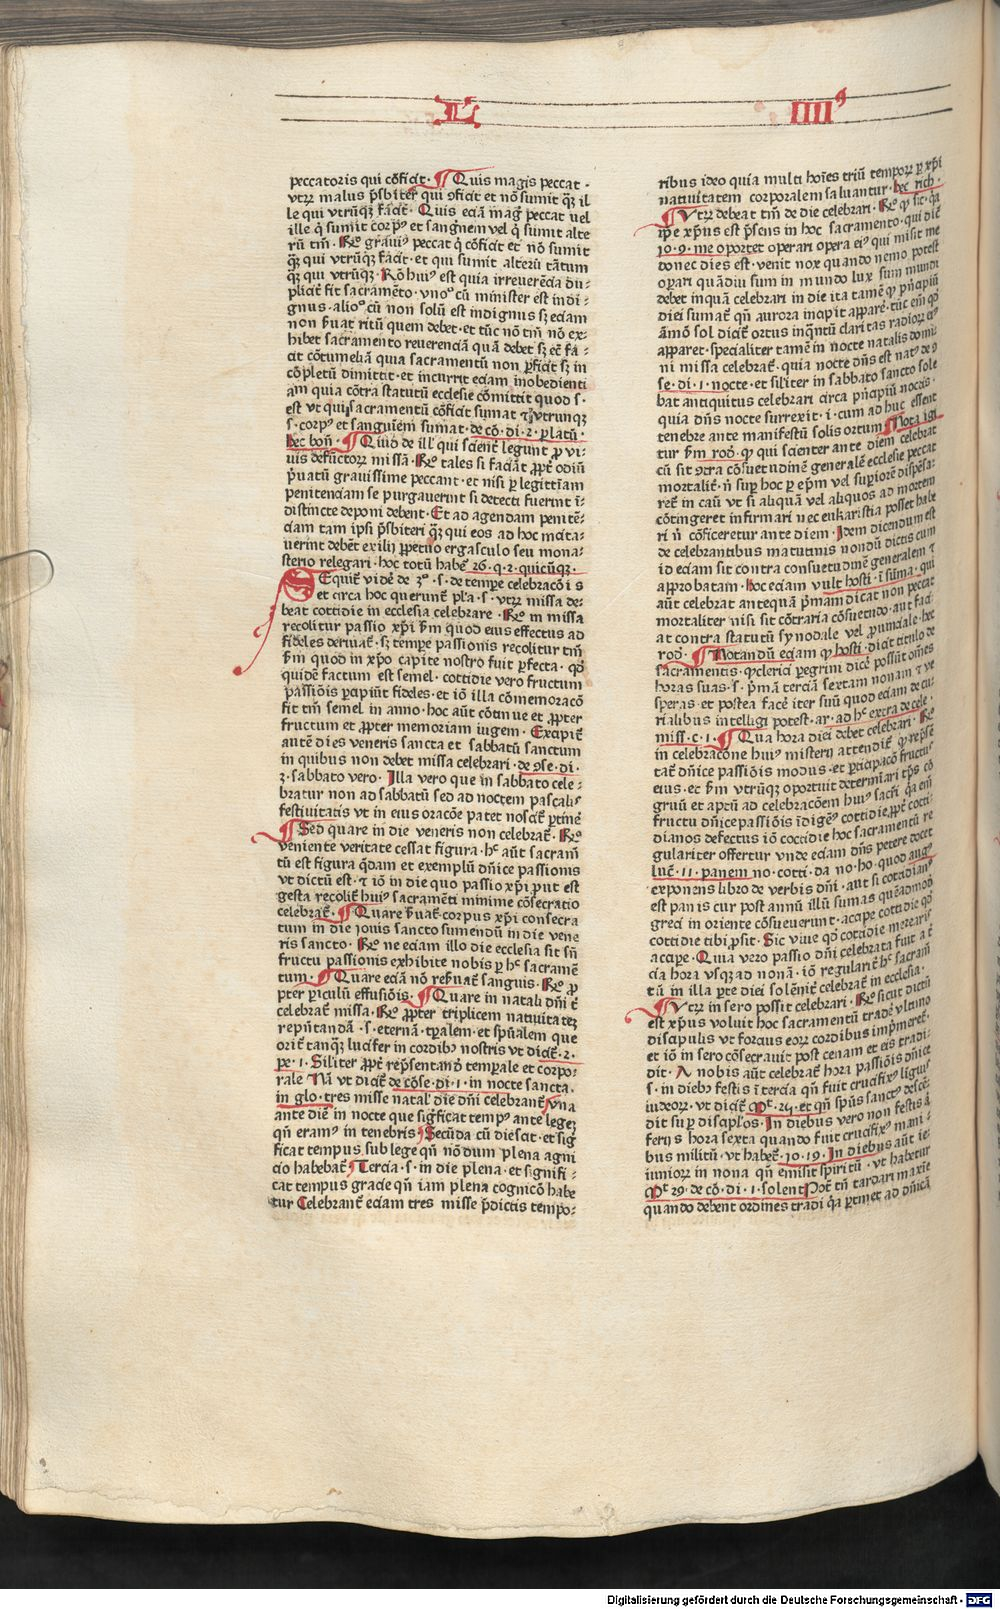 L IIII⁹
peccatoris qui cōficit · ¶ Quis magis peccat ·
vtrꝝ malus p̄sbiter qui ꝯficit et nō sumit qꝫ il
le qui vtrūqꝫ facit · Quis eciā maḡ peccat uel
ille q̄ sumit corpꝰ et sangnem vel q̄ sumit alte
rū tm̄ · Rͦ grauiꝰ peccat q̄ cōficit et nō sumit
qꝫ qui vtrūqꝫ facit · et qui sumit alterū tātum
qꝫ qui vtrūqꝫ · Rō huiꝰ est quia irreuerēcia du ⸗
plicit̄ fit sacramēto · vnoº cū minister est indi ⸗
gnus · alioº cū non solū est indignus sꝫ eciam
non ẜuat ritū quem debet · et tūc nō tm̄ nō ex ⸗
hibet sacramento reuerenciā quā debet sꝫ ec̄ fa ⸗
cit cōtumeliā quia sacramentū non ꝑficit sꝫ in
cōpletū dimittit · et incurrit eciam inobedienti
am quia cōtra statutū ecclesie cōmittit quod s ·
est vt qui sacramentū cōficit sumat vtrunqꝫ
s · corpꝰ et sanguinem sumat · de cō · di · 2 · ꝑ latū ·
hec bon̄ · ¶ Quid de ill' qui scient̄ legunt ꝓ vi ⸗
uis defūctorꝝ missā · Rͦ tales si faciāt ꝓpt̄ odiū
p̄uatū grauissime peccant · et nisi ꝑ legittīam
penitenciam se purgauerint si detecti fuerint ī ⸗
distincte deponi debent · Et ad agendam penitē ⸗
ciam tam ipsi p̄sbiteri qꝫ qui eos ad hoc incita ⸗
uerint debēt exilij ꝑpetuo ergasculo seu mona ⸗
sterio relegari · hoc totū habeˀ 26 · q · 2 · quicūqꝫ ·
Sequit̄ videˀ de 3º · s · de tempe celebracōis
et circa hoc querunt̄ pl'a · s · vtrꝝ missa de ⸗
beat cottidie in ecclesia celebrare · Rͦ in missa
recolitur passio xp̄i ẜm quod eius effectus ad
fideles deriuat̄ · sꝫ tempe passionis recolitur tm̄
ẜm quod in xp̄o capite nostro fuit ꝑfecta · qd̄
quidē factum est semel · cottidie vero fructum
passiōis ꝑcipiūt fideles · et iō illa cōmemoracō
fit tm̄ semel in anno · hoc aūt cōtinue et ꝓpter
fructum et ꝓpter memoriam iugem · Excipit̄
autē dies veneris sancta et sabbatū sanctum
in quibus non debet missa celebrari · de ꝯse · di ·
3 · sabbato vero · Illa vero que in sabbato cele ⸗
bratur non ad sabbatū sed ad noctem pascalis
festiuitatis vt in eius oracōe patet noscit̄ ꝑtinē
¶ Sed quare in die veneris non celebrat̄ · Rͦ
veniente veritate cessat figura · hͨ aūt sacram̄
tū est figura q̄dam et exemplū dn̄ice passionis
vt dictū est · et iō in die quo passio xp̄i ꝓut est
gesta recolit̄ huiꝰ sacramēti minime cōsecratio
celebrat̄ · ¶ Quare ẜuat̄ corpus xp̄i consecra
tum in die iouis sancto sumendū in die vene
ris sancto · Rͦ ne eciam illo die ecclesia sit sn̄
fructu passionis exhibite nobis ꝑ hͨ sacramē
tum · ¶ Quare eciā nō reẜuat̄ sanguis · Rͦ ꝓ
pter ꝑiculū effusiōis · ¶ Quare in natali dn̄i t̄
celebrat̄ missa · Rͦ ꝓpter triplicem natiuitatē
rep̄ntandā · s · eternā · tꝑalem · et spūalem que
orit̄ tanqꝫ lucifer in cordibꝰ nostris vt dicit̄ · 2 ·
pe · 1 · Siliter ꝓpt̄ rep̄sentand̄ temꝑale et corpo ⸗
rale Nā vt dicit̄ de cōse · di · 1 · in nocte sancta ·
in glo · tres misse natal' die dn̄i celebrant̄ vna
ante diē in nocte que sigficat tempꝰ ante legē
qn̄ eramꝰ in tenebris Secūda cū diescit · et siḡ
ficat tempus sub lege qn̄ nōdum plena agni
cio habebat̄ Tercia · s · in die plena · et signifi ⸗
cat tempus gracie qn̄ iam plena cognicō habe
tur Celebrant̄ eciam tres misse p̄dictis tempo ⸗
ribus ideo quia multi hoīes triū temporꝝ ꝑ xp̄i
natiuitatem corporalem saluantur · hec rich ·
¶ Vtrꝝ debeat tm̄ de die celebrari · Rͦ qꝫ sic · q̄a
ip̄e xp̄us est p̄sens in hoc sacramento · qui dic̄
10 · 9 · me oportet operari opera eiꝰ qui misit me
donec dies est · venit nox quando nemo potest
oꝑari quādiu sum in mundo lux sum mundi
debet inquā celebrari in die ita tamē qꝫ p̄ncipiū
diei sumat̄ qn̄ aurora incipit apparē · tūc em̄ qd̄
āmō sol dicit̄ ortus inqn̄tū claritas radiorꝝ eiꝰ
apparet · specialiter tamē in nocte natalis domi ⸗
ni missa celebrat̄ · quia nocte dn̄s est natꝰ de ꝯ
se · di · 1 · nocte · et siliter in sabbato sancto sole
bat antiquitus celebrari circa p̄ncipiū noctis ·
quia dn̄s nocte surrexit · i · cum ad huc essent
tenebre ante manifestū solis ortum Nota igi
tur ẜm rod̄ · qꝫ qui scienter ante diem celebrat
cū sit ꝯtra cōsuetudinē generalē ecclesie peccat
mortalit̄ · n̄ suꝑ hoc ꝑ ep̄m vel suꝑiorē dispēsa ⸗
ret̄ in caū vt si aliquā vel aliquos ad mortem
cōtingeret infirmari nec eukaristia posset habe
ri n̄ cōficeretur ante diem · Idem dicendum est
de celebrantibus matutinis nondū dictis cum
id eciam sit contra consuetudinē generalem et
approbatam · hoc eciam vult hosti · ī suma · qui
aūt celebrat antequā p̄mam dicat non peccat
mortaliter nisi sit cōtraria cōsuetudo · aut faci ⸗
at contra statutū synodale vel ꝓuinciale · hec
rod̄ · ¶ Notandū eciam qꝫ hosti · dicit titulo de
sacramentis · qꝫ clerici ꝑegrini dicē possūt om̄es
horas suas · s · p̄mā terciā sextam nonam et ve
speras · et postea facē iter suū quod eciam de cu ⸗
rialibus intelligi potest · ar · ad hͨ extra de cele ·
miss · c · 1 · ¶ Qua hora diei debet celebrari · Rͦ
in celebracōne huiꝰ misterij attendit̄ qꝫ rep̄sē
tat̄ dn̄ice passiōis modus · et ꝑticipacō fructus
eius · et ẜm vtrūqꝫ oportuit determīari tp̄s cō
gruū et aptū ad celebracōem huiꝰ sacri · q̄a em̄
fructu dn̄ice passiōis īdigemꝰ cottidie, ꝓpt̄ cotti ⸗
dianos defectus iō cottidie hoc sacramentū re
gulariter offertur vnde eciam dn̄s petere docet
luc̄ · 11 · panem no · cotti · da no · ho · quod augꝰ
exponens libro de verbis dn̄i · aut si cotidianꝰ
est panis cur post annū illū sumas quēadmod̄
greci in oriente cōsueuerunt · accipe cottidie qd̄
cottidie tibi ꝓsit · Sic viue qd̄ cottidie merearis
accipe · Quia vero passio dn̄i celebrata fuit a t̄
cia hora vsqꝫ ad nonā · iō regularit̄ hͨ sacram̄
tū in illa ꝑte diei solēnit̄ celebrat̄ in ecclesia ·
¶ Vtrꝝ in sero possit celebrari · Rͦ sicut dictū
est xp̄us voluit hoc sacramentū tradē vltimo
discipulis vt forcius eorꝝ cordibus imp̄meret̄ ·
et iō in sero cōsecrauit post cenam et eis tradi ⸗
dit · A nobis aūt celebrat̄ hora passiōis dn̄ice
s · in diebꝰ festis ī tercia qn̄ fuit crucifixꝰ ligius
iudeorꝝ · vt dicit̄ Mͨ · 24 · et qn̄ spūs sanctꝰ descē
dit suꝑ discipl'os · In diebus vero non festis ī
ferijs hora sexta quando fuit crucifixꝰ mani ⸗
bus militū · vt habet̄ · 10 · 19 · In diebus aūt ie ⸗
iuniorꝝ in nona qn̄ emisit spiritū · vt habetur
Mͭ 29 · de cō · di · 1 · solent Pot̄ tn̄ tardari maxie
quando debent ordines tradi q̄a ꝑtinet ad dn̄icā
Digitalisierung gefördert durch die Deutsche Forschungsgemeinschaft - DFG